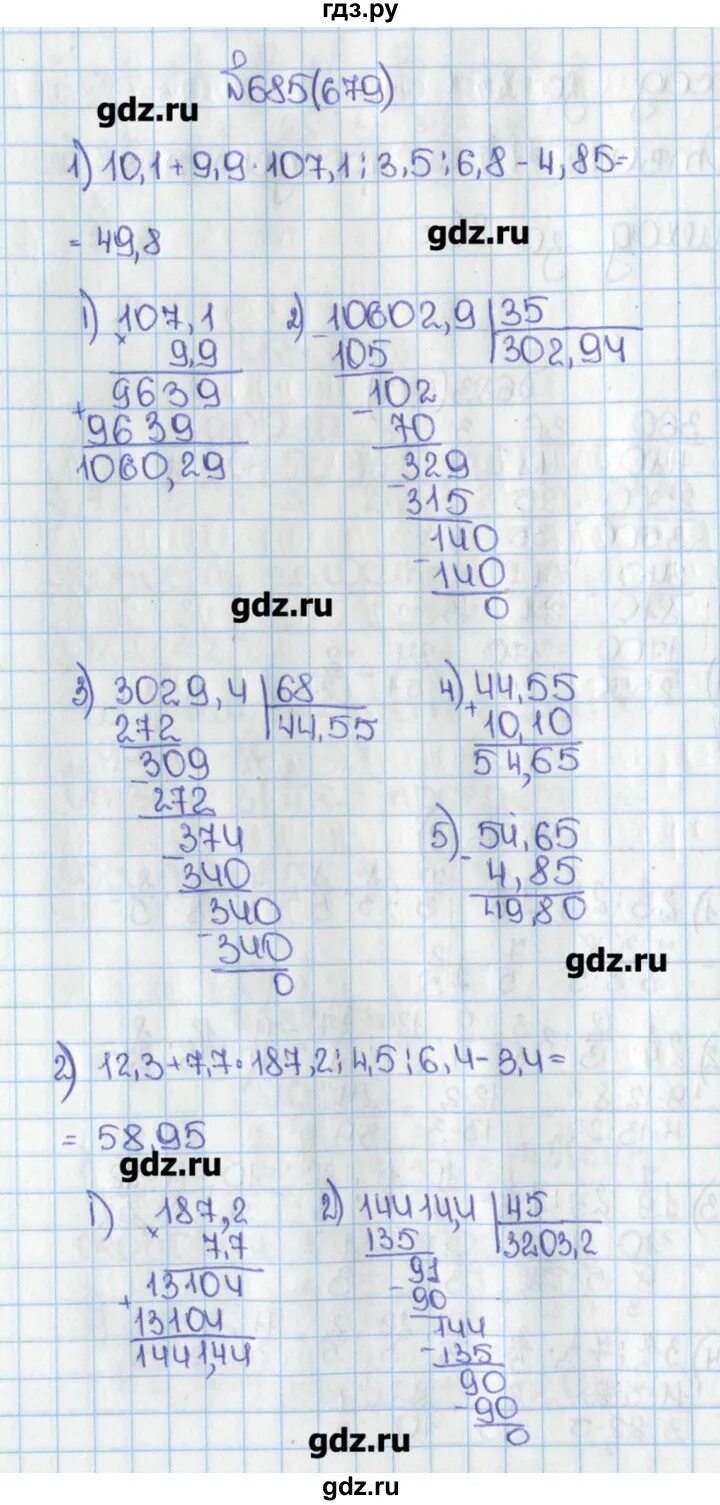 гдз.ру
№685(679)
gdz.ru
1) 10,1+9,9·107,1:3,5:6,8-4,85=
= 49,8
gdz.ru
1) 107,1
× 9,9
9639
+ 9639
1060,29
2) 10602,9 | 35
- 105 302,94
102
- 70
329
- 315
140
- 140
0
gdz.ru
3) 3029,4 | 68
- 272 44,55
309
- 272
374
- 340
340
- 340
0
4) 44,55
+ 10,10
54,65
5) 54,65
- 4,85
49,80
gdz.ru
2) 12,3+7,7·187,2:4,5:6,4-3,4=
= 58,95
gdz.ru
1) 187,2
× 7,7
13104
+ 13104
1441,44
2) 14414,4 | 45
135 3203,2
91
- 90
144
- 135
90
- 90
0
gdz.ru
gdz.ru